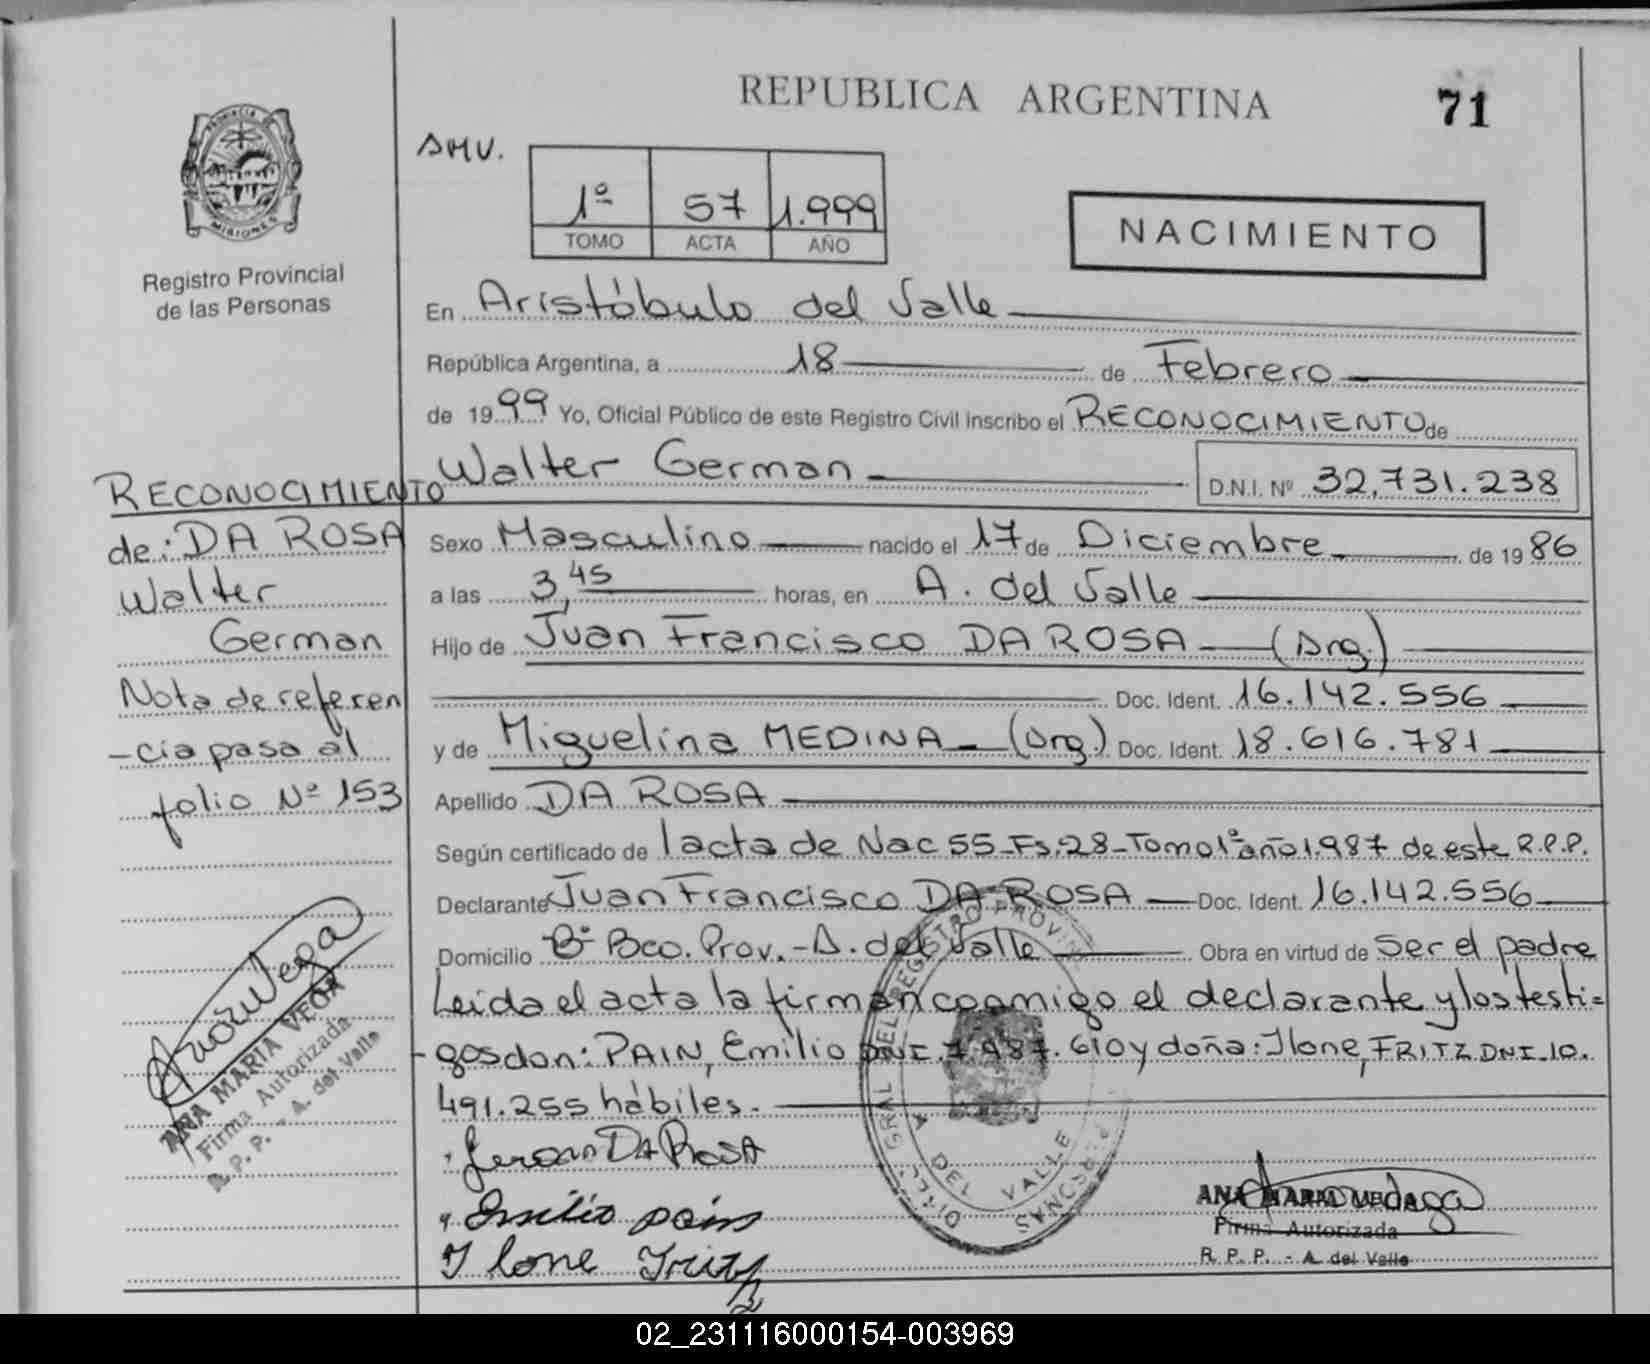 REPUBLICA ARGENTINA
71
PROVINCIA DE
MISIONES
Registro Provincial
de las Personas
AMV.
1º 57 1.999
TOMO ACTA AÑO
NACIMIENTO
En Aristóbulo del Valle
República Argentina, a 18 de Febrero
de 1999 Yo, Oficial Público de este Registro Civil inscribo el RECONOCIMIENTO de
Walter German D.N.I. Nº 32.731.238
Sexo Masculino nacido el 17 de Diciembre de 1986
a las 3,45 horas, en A. del Valle
Hijo de Juan Francisco DA ROSA (Arg.)
Doc. Ident. 16.142.556
y de Miguelina MEDINA (Arg.) Doc. Ident. 18.616.781
Apellido DA ROSA
Según certificado de lacta de Nac 55-Fs.28-Tomo1º año1.987 de este R.P.P.
Declarante Juan Francisco DA ROSA Doc. Ident. 16.142.556
Domicilio Bº Bco. Prov. - A. del Valle Obra en virtud de Ser el padre
Leida el acta la firman conmigo el declarante y los testi=
-gos don: PAIN, Emilio DNI. 7.987.610 y doña: Ilone, FRITZ DNI-10.
491.255 hábiles.
DA ROSA
Emilio pain
Ilone Fritz
RECONOCIMIENTO
de: DA ROSA
Walter
German
Nota de referen
-cia pasa al
folio Nº 153
ANA MARIA VEGA
Firma Autorizada
R. P. P. - A. del Valle
DIREC. GRAL DEL REGISTRO PROVIN PERSONAS
A DEL VALLE
ANA MARIA VEGA
Firma Autorizada
R. P. P. - A. del Valle
02_231116000154-003969